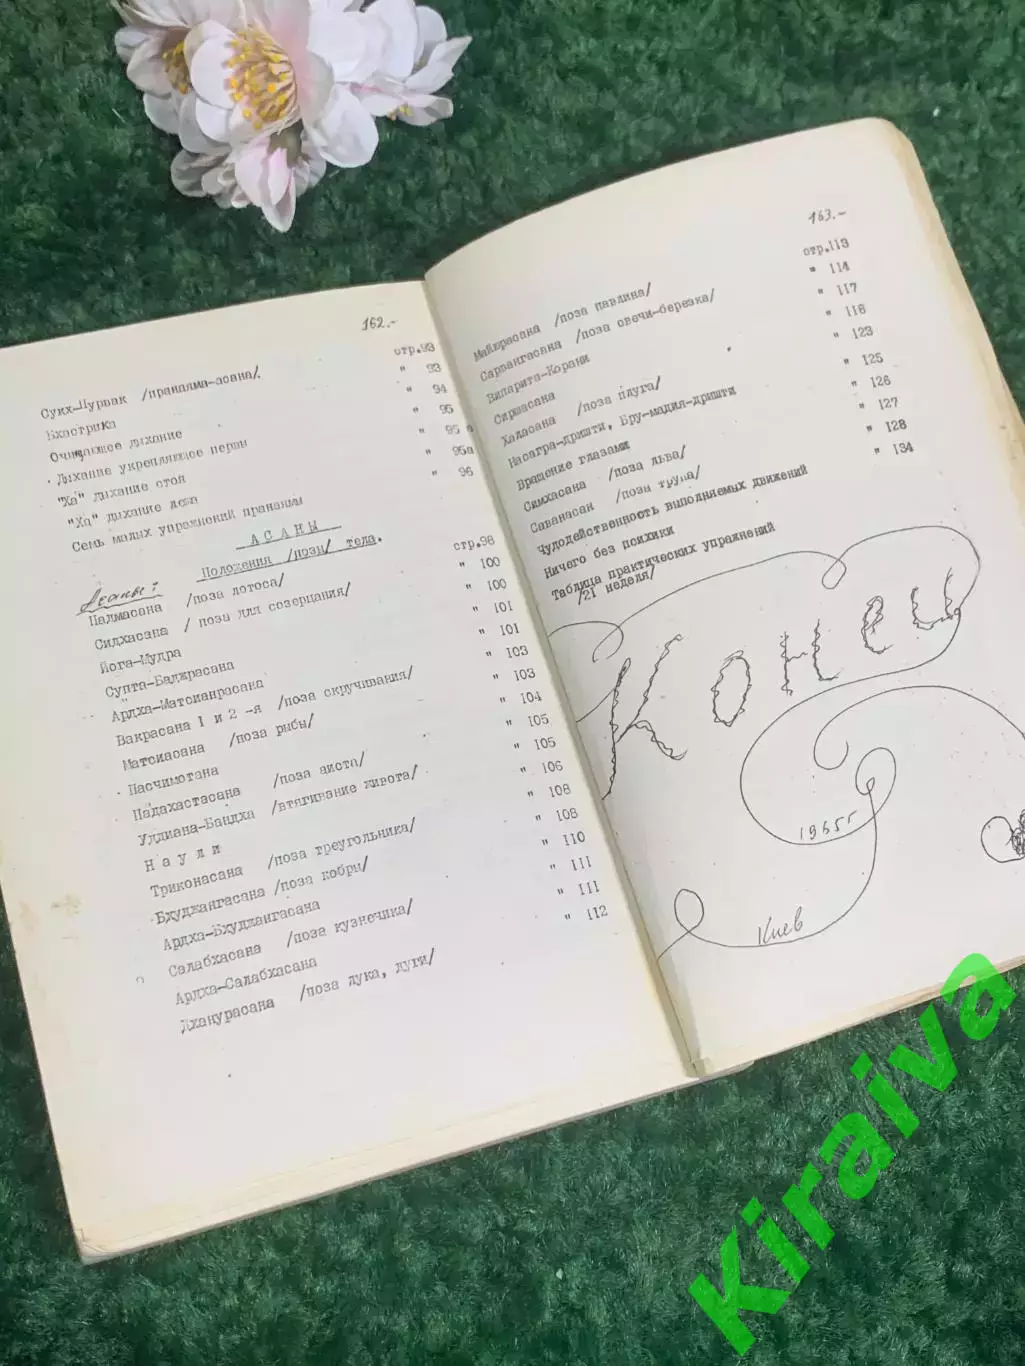 162.-
Сукх-Пурвак /пранаяма-асана/. стр.93
Бхастрика " 93
Очищающее дыхание " 94
Дыхание укрепляющее нервы " 95
"Ха" дыхание стоя " 95 а
"Ха" дыхание лежа " 95а
Семь малых упражнений пранаямы " 96
АСАНЫ
Положения /позы/ тела.
Асаны: стр.98
Падмасана /поза лотоса/ " 100
Сидхасана / поза для созерцания/ " 100
Йога-Мудра " 101
Супта-Ваджрасана " 101
Ардха-Матсианрасана " 103
Вакрасана 1 и 2-я /поза скручивания/ " 103
Матсиасана /поза рыбы/ " 104
Пасчимотана " 105
Падахастасана /поза аиста/ " 105
Уддиана-Бандха /втягивание живота/ " 106
Наули " 108
Триконасана /поза треугольника/ " 108
Бхуджангасана /поза кобры/ " 110
Ардха-Бхуджангасана " 111
Салабхасана /поза кузнечика/ " 111
Ардха-Салабхасана " 112
Дханурасана /поза лука, дуги/
163.-
Майюрасана /поза павлина/ стр.113
Сарвангасана /поза свечи-березка/ " 114
Випарита-Корани " 117
Сиршасана " 118
Халасана /поза плуга/ " 123
Насагра-дришти, Бру-мадия-дришти " 125
Вращение глазами " 126
Симхасана /поза льва/ " 127
Саванасан /поза трупа/ " 128
Чудодейственность выполняемых движений " 134
Ничего без психики
Таблица практических упражнений
/21 неделя/
Конец
1965г
Киев
Kiraiva